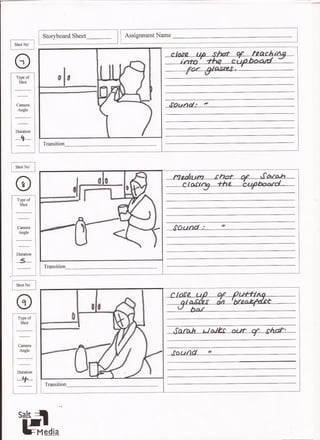 Storyboard Sheet
Assignment Name
Shot No'
7
Type of
Shot
Camera
Angle
Duration
4
Transition
close up shot of reaching
into the cupboard
for glasses.
Sound: "
Shot No'
8
Type of
Shot
Camera
Angle
Duration
5
Transition
Medium shot of Sarah
closing the cupboard.
Sound: "
Shot No'
9
Type of
Shot
Camera
Angle
Duration
4
Transition
Close up of putting
glasses on breakfast
bar
Sarah walks out of shot.
Sound "
Salt
Media